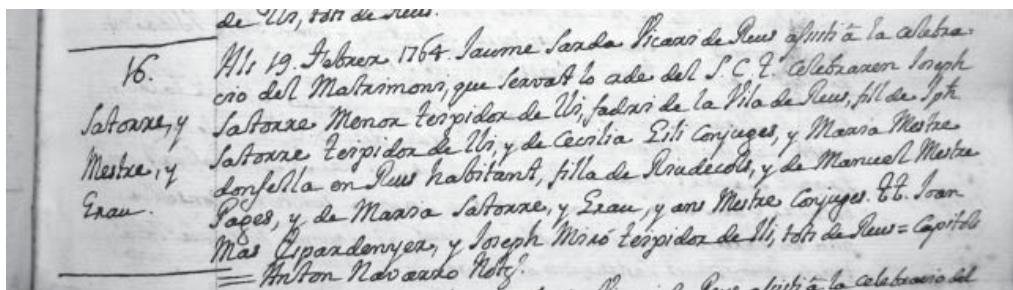 de Lli, tots de Reus.
16.
Satorre, y
Mestre, y
Grau.
Als 19. Febrer 1764. Jaume Sarda Vicari de Reus assisti â la celebra-
cio del Matrimoni, que servat lo orde del S. C. T. celebraren Joseph
Satorre Menor teixidor de Lli, fadri de la Vila de Reus, fill de Jph
Satorre teixidor de Lli, y de Cecilia Gili Conjuges, y Maria Mestre
donsella en Reus habitant, filla de Riudecols, y de Manuel Mestre
Pages, y de Maria Satorre, y Grau, y ans Mestre Conjuges. TT. Joan
Mas Espardenyer, y Joseph Miró teixidor de Lli, tots de Reus = Capitols
= Anton Navarro Not.
de Reus assisti â la celebracio del